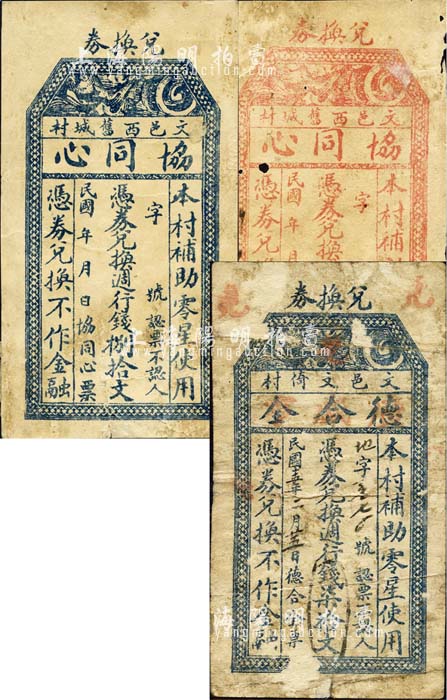 券換兌
村城舊西邑文
心同協
本村補助零星使用
字 號 認票不認人
憑券兌換週行錢捌拾文
民國 年 月 日協同心票
憑券兌換不作金融
券換兌
村城舊西邑文
心同協
本村補助零
字
憑券兌換
民國 年
憑券兌
券換兌
村倚文邑文
全合德
本村補助零星使用
地字 號 認票不認人
憑券兌換週行錢柒拾文
民國 年 月 日德合
憑券兌換不作金融
上海陽明拍賣
yangmingauction.com